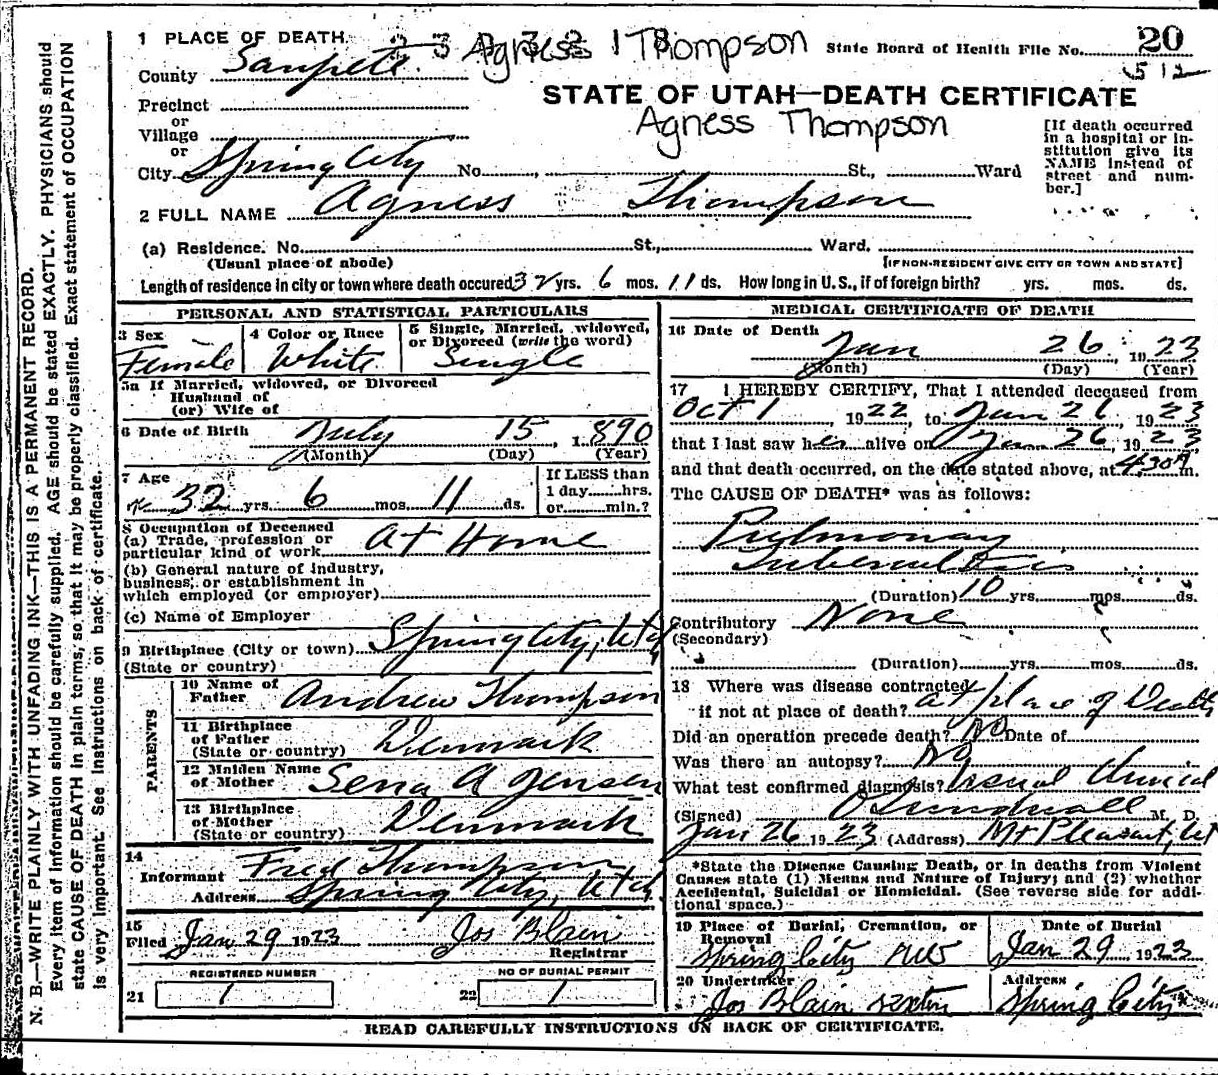 1 PLACE OF DEATH
Agness Thompson
State Board of Health File No. 20
County Sanpete
512
STATE OF UTAH—DEATH CERTIFICATE
Precinct
or
Village
or
Agness Thompson
[If death occurred in a hospital or institution give its NAME instead of street and number.]
City Spring City No. St., Ward
2 FULL NAME Agness Thompson
(a) Residence. No. St., Ward.
(Usual place of abode) [IF NON-RESIDENT GIVE CITY OR TOWN AND STATE]
Length of residence in city or town where death occured 32 yrs. 6 mos. 11 ds. How long in U.S., if of foreign birth? yrs. mos. ds.
PERSONAL AND STATISTICAL PARTICULARS
3 Sex
Female
4 Color or Race
White
5 Single, Married, widowed, or Divorced (write the word)
Single
5a If Married, widowed, or Divorced
Husband of
(or) Wife of
6 Date of Birth July 15, 1890
(Month) (Day) (Year)
7 Age
32 yrs. 6 mos. 11 ds.
If LESS than
1 day hrs.
or min.?
8 Occupation of Deceased
(a) Trade, profession or
particular kind of work At Home
(b) General nature of industry,
business, or establishment in
which employed (or employer)
(c) Name of Employer
9 Birthplace (City or town) Spring City, Utah
(State or country)
PARENTS
10 Name of
Father Andrew Thompson
11 Birthplace
of Father Denmark
(State or country)
12 Maiden Name
of Mother Sena A Jensen
13 Birthplace
of Mother Denmark
(State or country)
14
Informant Fred Thompson
Address Spring City, Utah
15
Filed Jan 29 1923 Jos Blain
Registrar
REGISTERED NUMBER
21 1
NO OF BURIAL PERMIT
22 1
MEDICAL CERTIFICATE OF DEATH
16 Date of Death
Jan 26, 1923
(Month) (Day) (Year)
17 I HEREBY CERTIFY, That I attended deceased from
Oct 1 1922 to Jan 26 1923
that I last saw her alive on Jan 26 1923
and that death occurred, on the date stated above, at 430 m.
The CAUSE OF DEATH* was as follows:
Pulmonary
Tuberculosis
(Duration) 10 yrs. mos. ds.
Contributory None
(Secondary)
(Duration) yrs. mos. ds.
18 Where was disease contracted
if not at place of death? at place of Death
Did an operation precede death? No Date of
Was there an autopsy? No
What test confirmed diagnosis? Usual Clinical
(Signed) O Sundwall M. D.
Jan 26 1923 (Address) Mt Pleasant, Ut
*State the Disease Causing Death, or in deaths from Violent
Causes state (1) Means and Nature of Injury; and (2) whether
Accidental, Suicidal or Homicidal. (See reverse side for addi-
tional space.)
19 Place of Burial, Cremation, or
Removal
Spring City
Date of Burial
Jan 29 1923
20 Undertaker
Jos Blain sexton
Address
Spring City
READ CAREFULLY INSTRUCTIONS ON BACK OF CERTIFICATE.
N. B.—WRITE PLAINLY WITH UNFADING INK—THIS IS A PERMANENT RECORD.
Every item of information should be carefully supplied. AGE should be stated EXACTLY. PHYSICIANS should
state CAUSE OF DEATH in plain terms, so that it may be properly classified. Exact statement of OCCUPATION
is very important. See instructions on back of certificate.